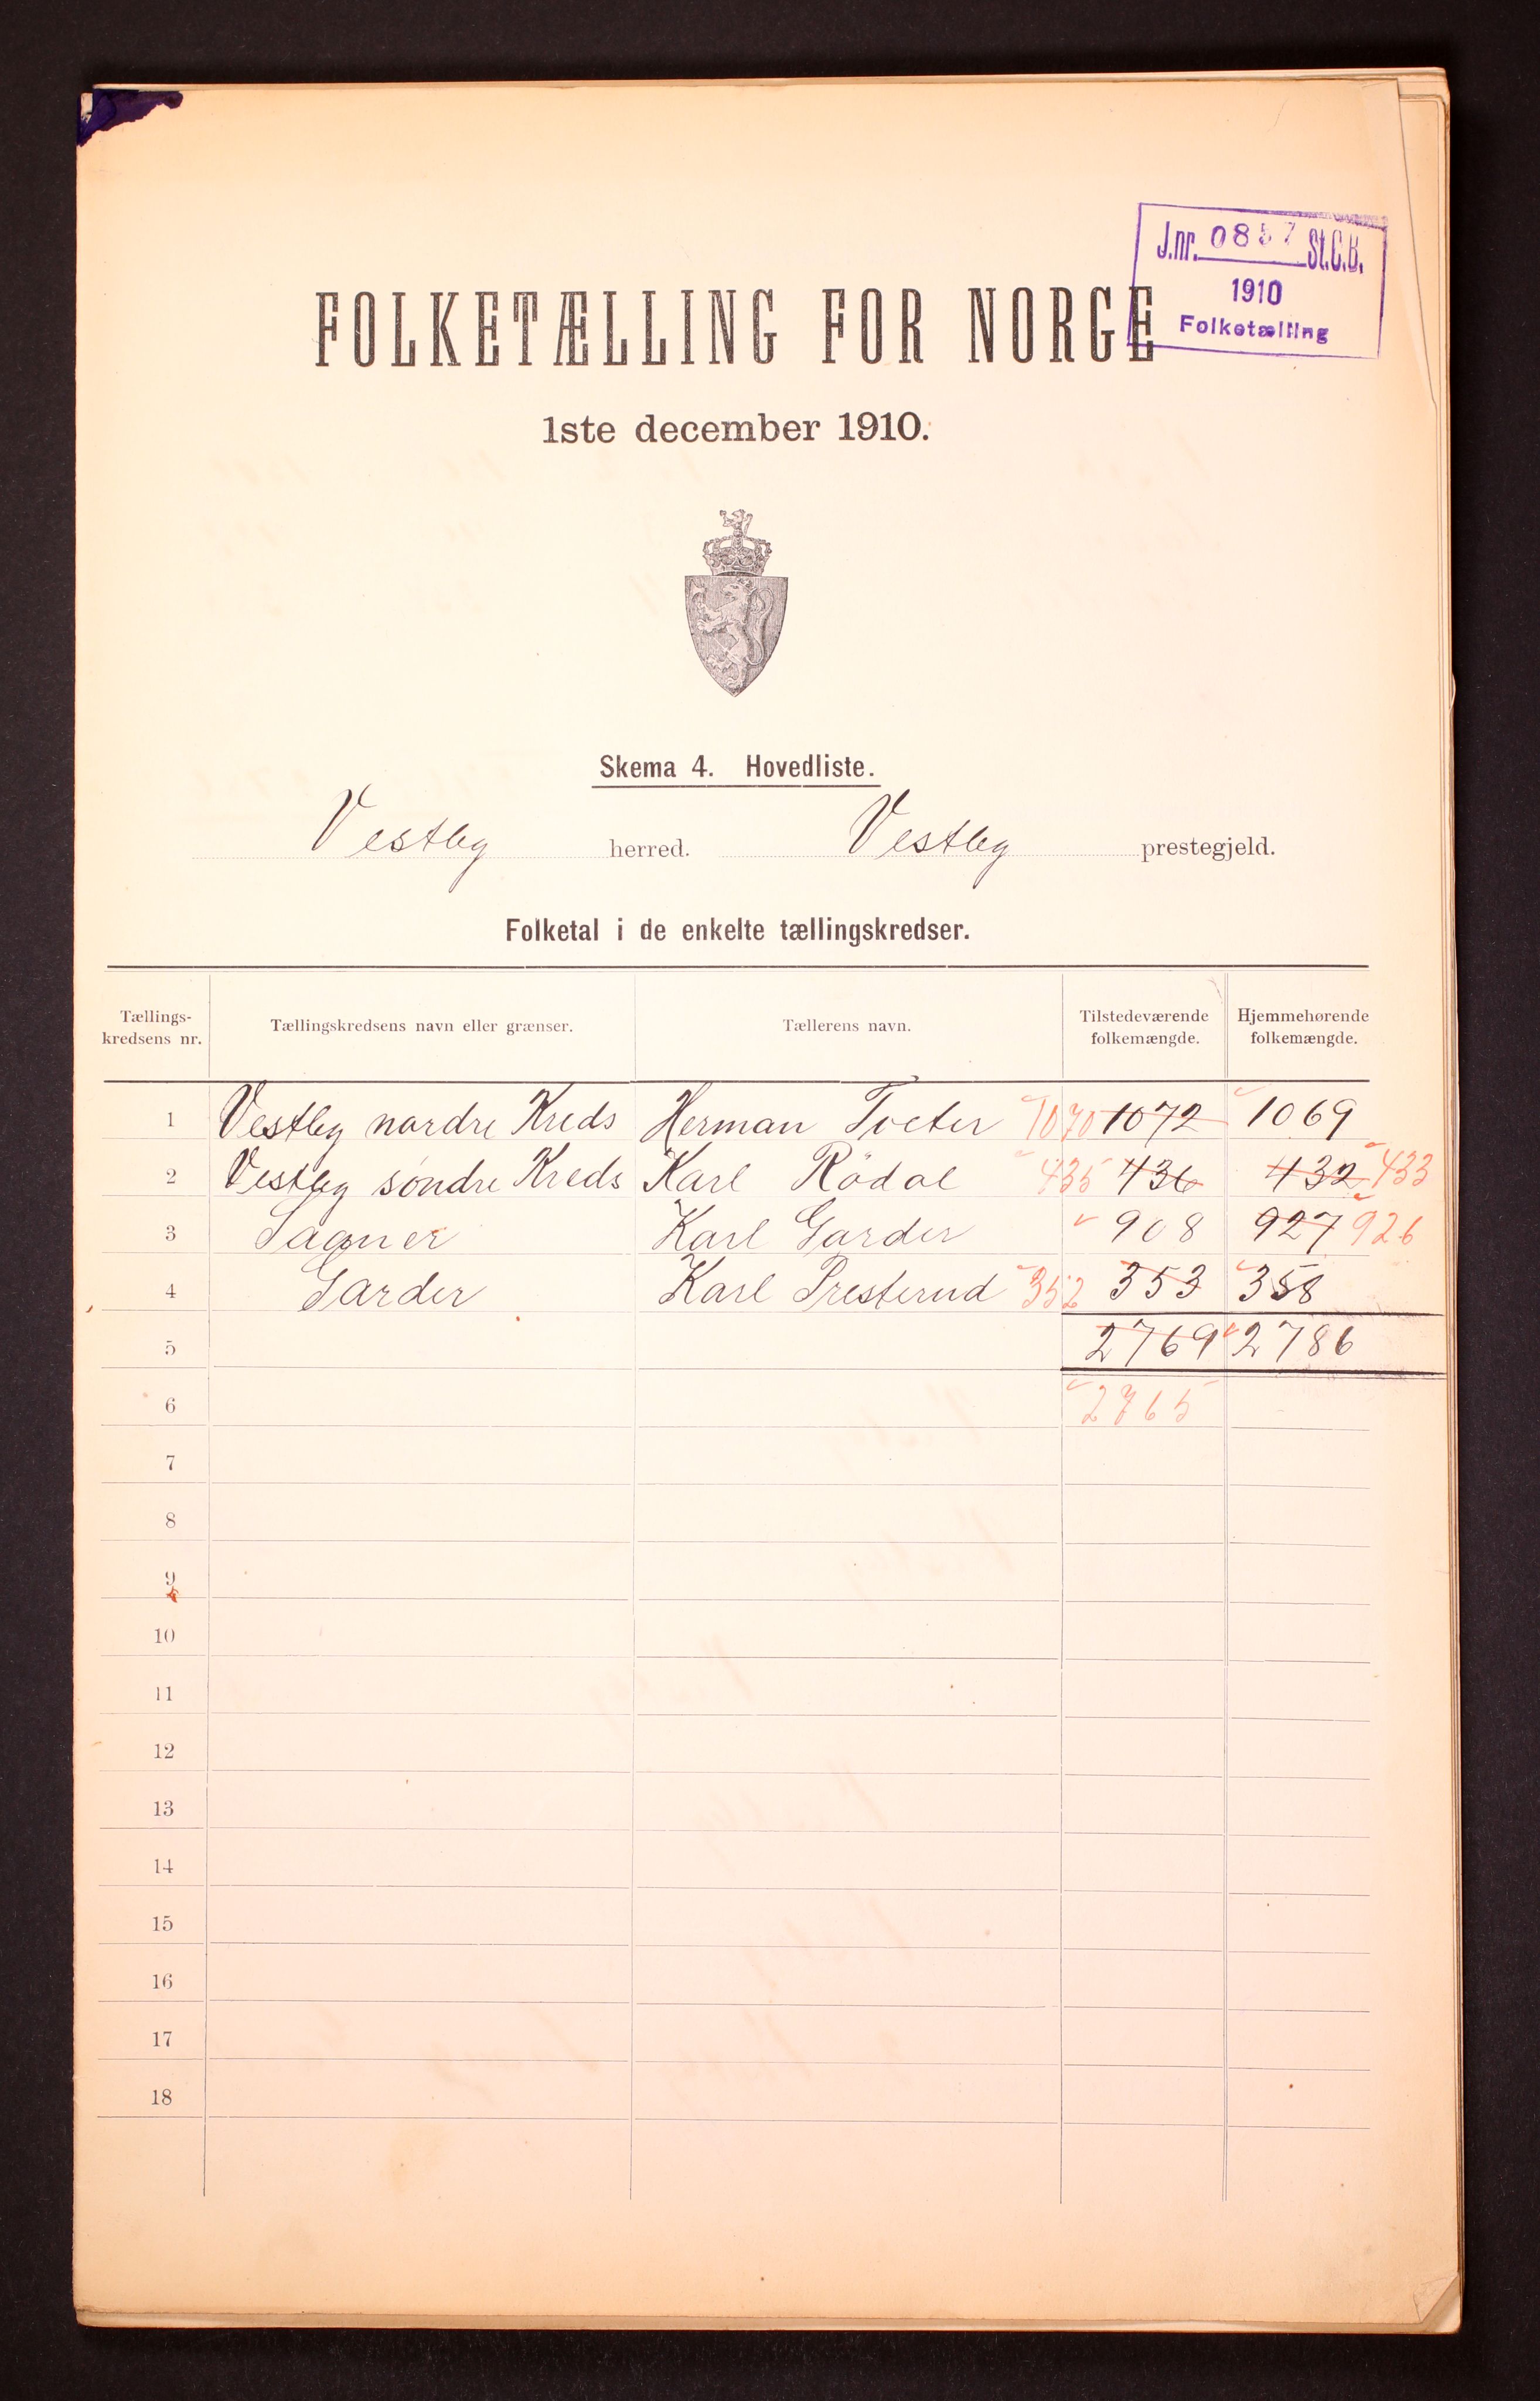 J.nr. 0857 St.C.B.
1910
Folketælling
FOLKETÆLLING FOR NORGE
1ste december 1910.
Skema 4. Hovedliste.
Vestby herred. Vestby prestegjeld.
Folketal i de enkelte tællingskredser.
Tællings-kredsens nr. Tællingskredsens navn eller grænser. Tællerens navn. Tilstedeværende folkemængde. Hjemmehørende folkemængde.
1 Vestby nordre Kreds Herman Tveter 1070 1072 1069
2 Vestby søndre Kreds Karl 435 436 432 433
3 Sagner Karl Garder 908 927 926
4 Garder Karl Presterud 352 353 358
5 2769 2786
6 2765
7
8
9
10
11
12
13
14
15
16
17
18